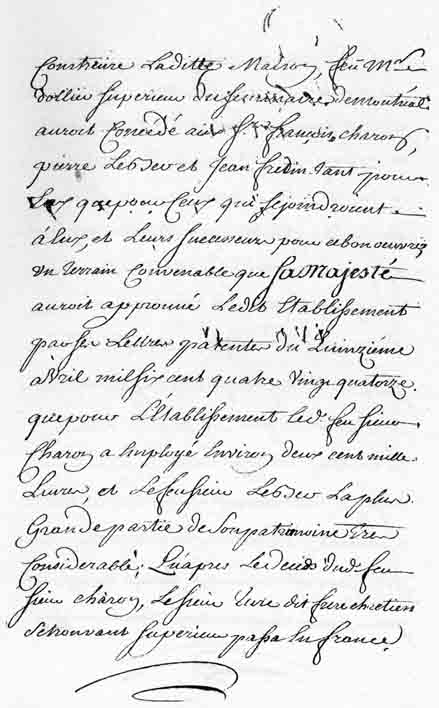 Construire Laditte Maison, feu Mr
dollier superieur du seminaire demontréal
auroit Concedé aux Srs françois charon,
pierre Leber et Jean fredin tant pour
Eux que pour Ceux qui se joindroient
à Eux et Leurs successeurs pour ce bon ouvrage
un terrain Convenable que sa Majesté
auroit approuvé Ledit Etablissement
par ses Lettres patentes du Quinziéme
avril mil six cent quatre vingt quatorze.
que pour L'Etablissement led. feu sieur
Charon a Employé Environ deux cent mille
Livres, et Le feu sieur Leber La plus
Grande partie de son patrimoine tres
Considerable; Qu'apres Le deceds dud. feu
sieur charon, Le sieur turc dit frere chretien
se trouvant superieur passa En france,